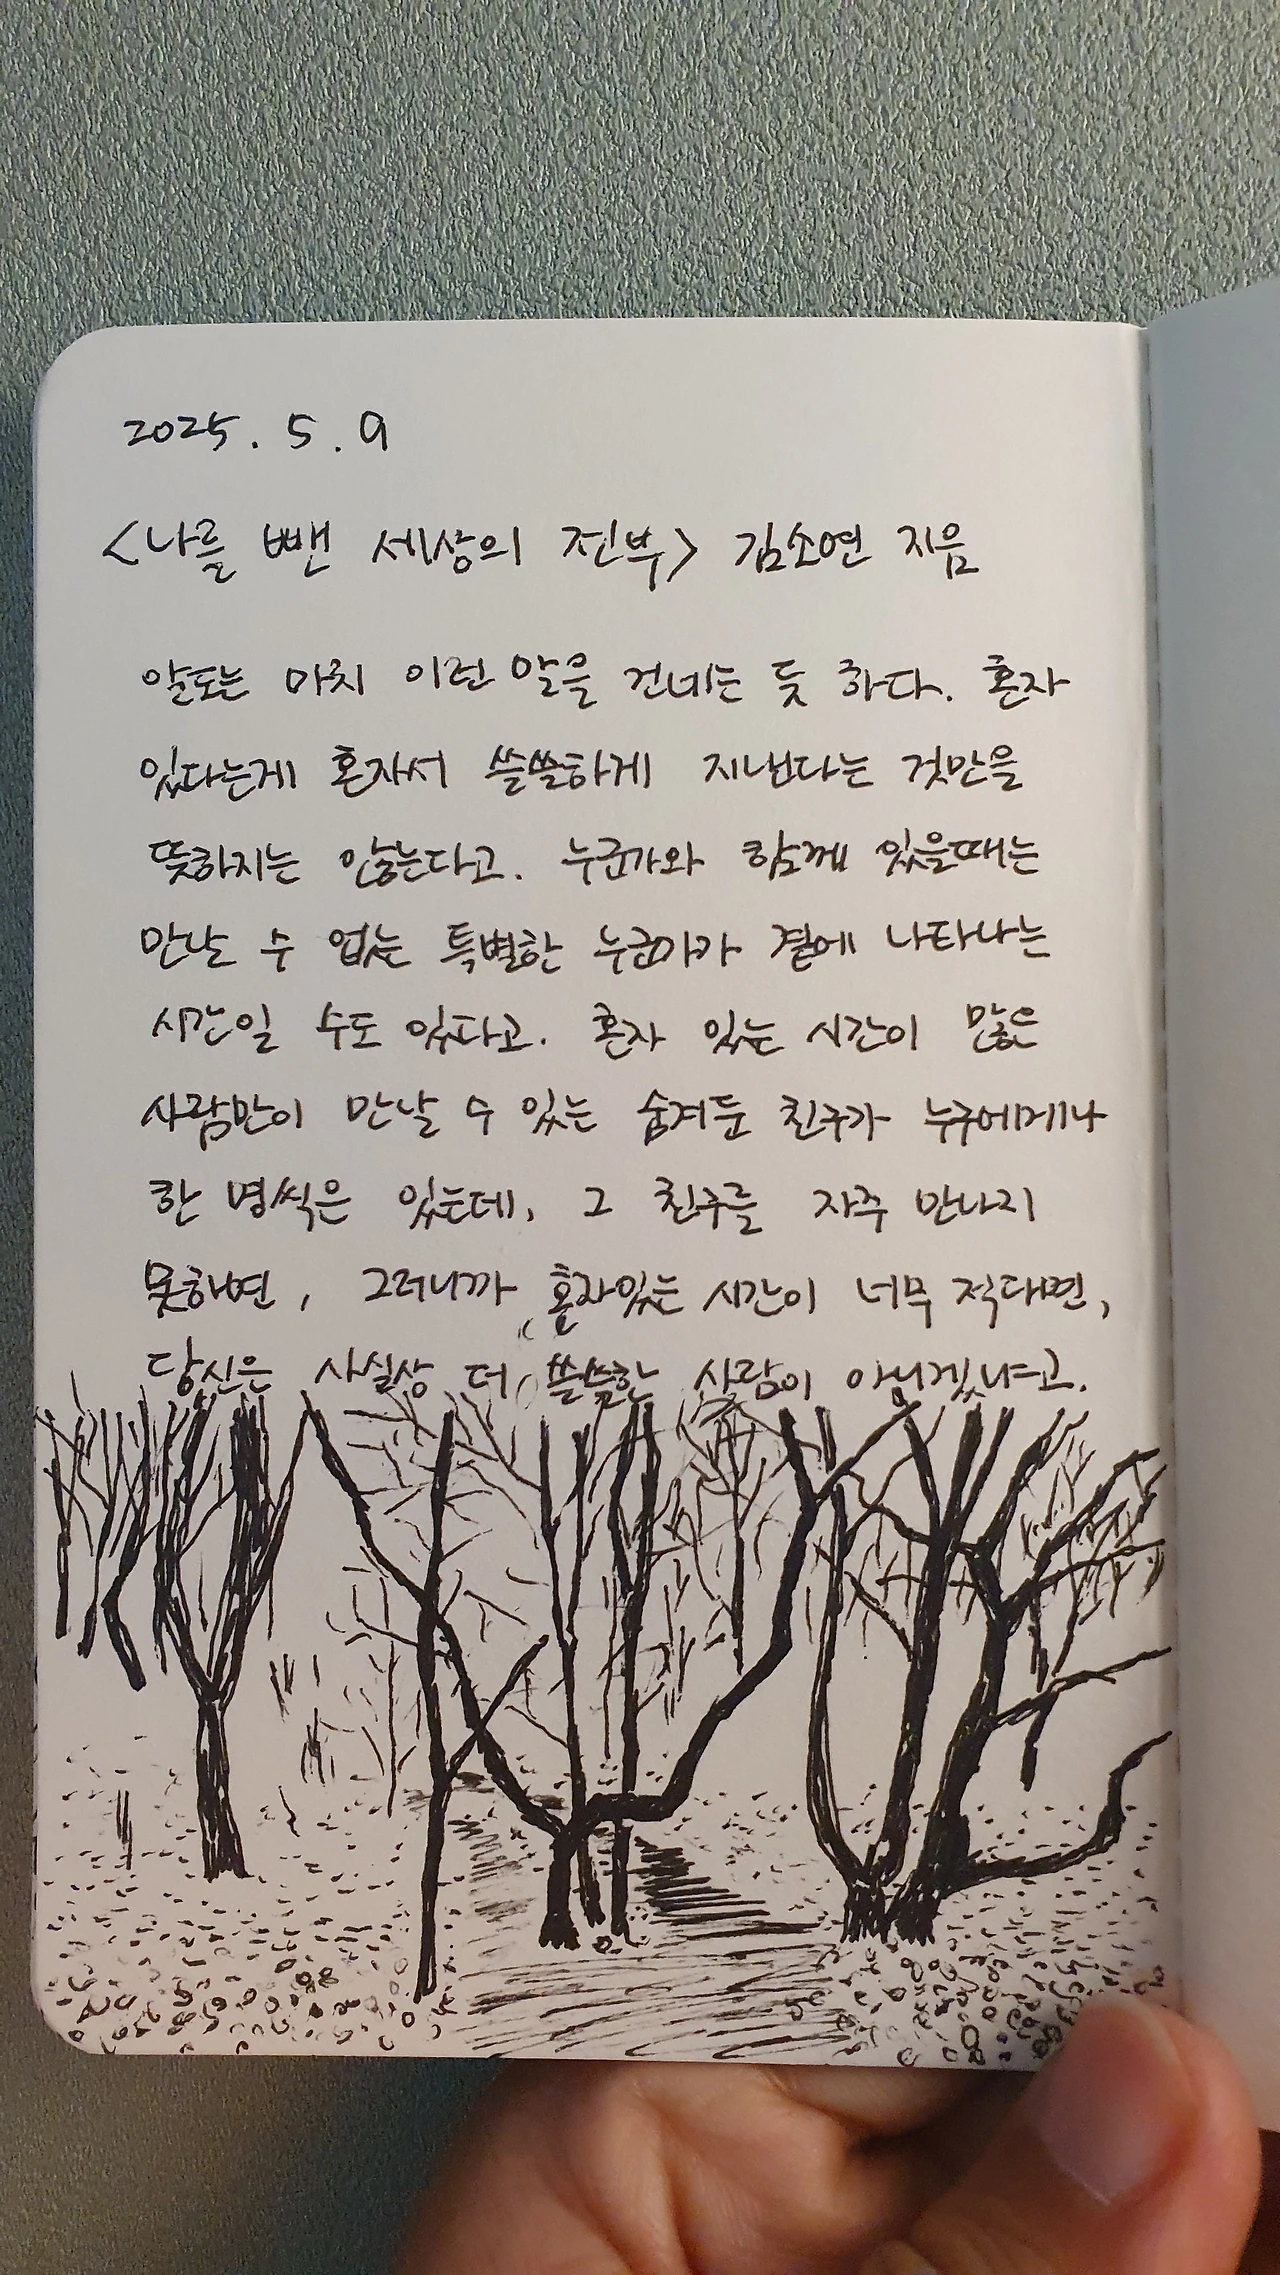 2025. 5. 9
<나를 뺀 세상의 전부> 김소연 지음
알도는 마치 이런 말을 건네는 듯 하다. 혼자
있다는게 혼자서 쓸쓸하게 지낸다는 것만을
뜻하지는 않는다고. 누군가와 함께 있을때는
만날 수 없는 특별한 누군가가 곁에 나타나는
시간일 수도 있다고. 혼자 있는 시간이 많은
사람만이 만날 수 있는 숨겨둔 친구가 누구에게나
한 명씩은 있는데, 그 친구를 자주 만나지
못하면, 그러니까 혼자있는 시간이 너무 적다면,
당신은 사실상 더 쓸쓸한 사람이 아니겠냐고.